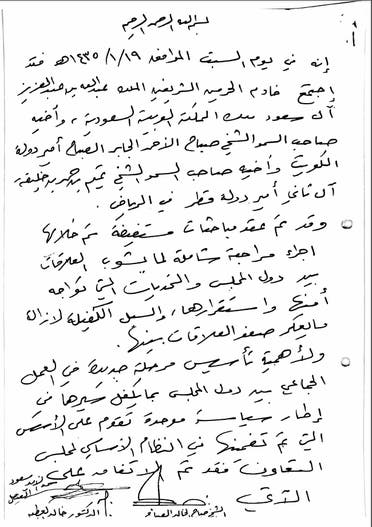 بسم الله الرحمن الرحيم
إنه في يوم السبت الموافق ١٤٣٥/١/١٩هـ فقد
اجتمع خادم الحرمين الشريفين الملك عبدالله بن عبدالعزيز
آل سعود ملك المملكة العربية السعودية، وأخيه
صاحب السمو الشيخ صباح الأحمد الجابر الصباح أمير دولة
الكويت وأخيه صاحب السمو الشيخ تميم بن حمد بن خليفه
آل ثاني أمير دولة قطر في الرياض.
وقد تم عقد مباحثات مستفيضة تم خلالها
اجراء مراجعة شاملة لما يشوب العلاقات
بين دول المجلس والتحديات التي تواجه
أمنها واستقرارها، والسبل الكفيلة لازالة
مايعكر صفو العلاقات بينها.
ولأهمية تأسيس مرحلة جديدة في العمل
الجماعي بين دول المجلس بما يكفل سيرها في
إطار سياسة موحدة تقوم على الأسس
التي تم تضمينها في النظام الأساسي لمجلس
التعاون فقد تم الاتفاق على
الآتي
سعود الفيصل
الشيخ صباح الخالد الصباح
الدكتور خالد العطيه